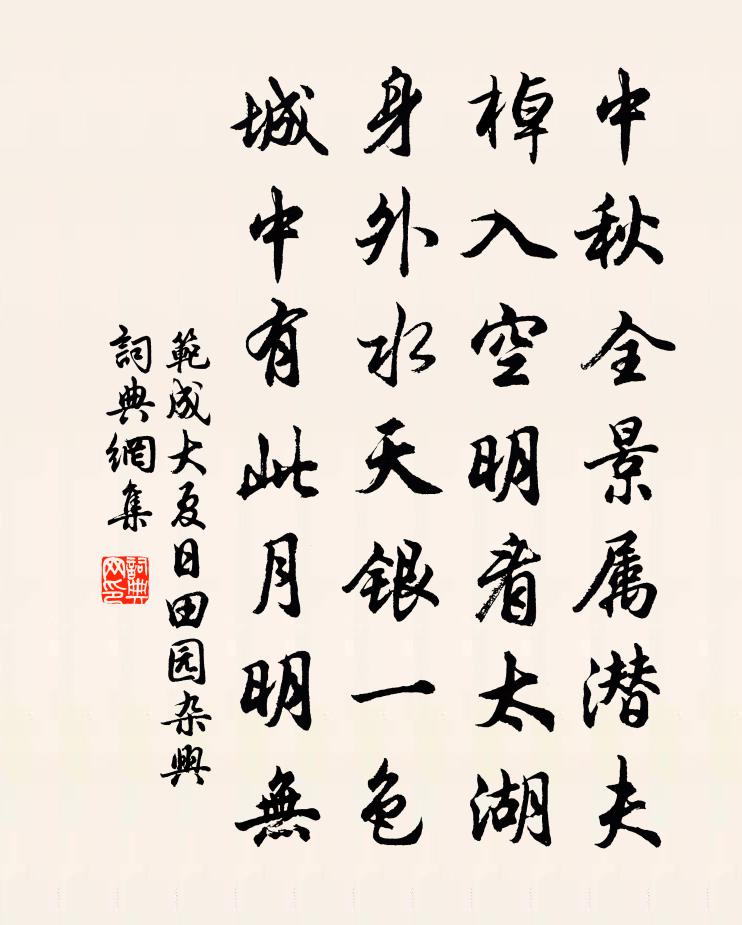 中秋全景属潜夫
棹入空明看太湖
身外水天银一色
城中有此月明無
範成大夏日田园杂興
詞典網集
詞典网印